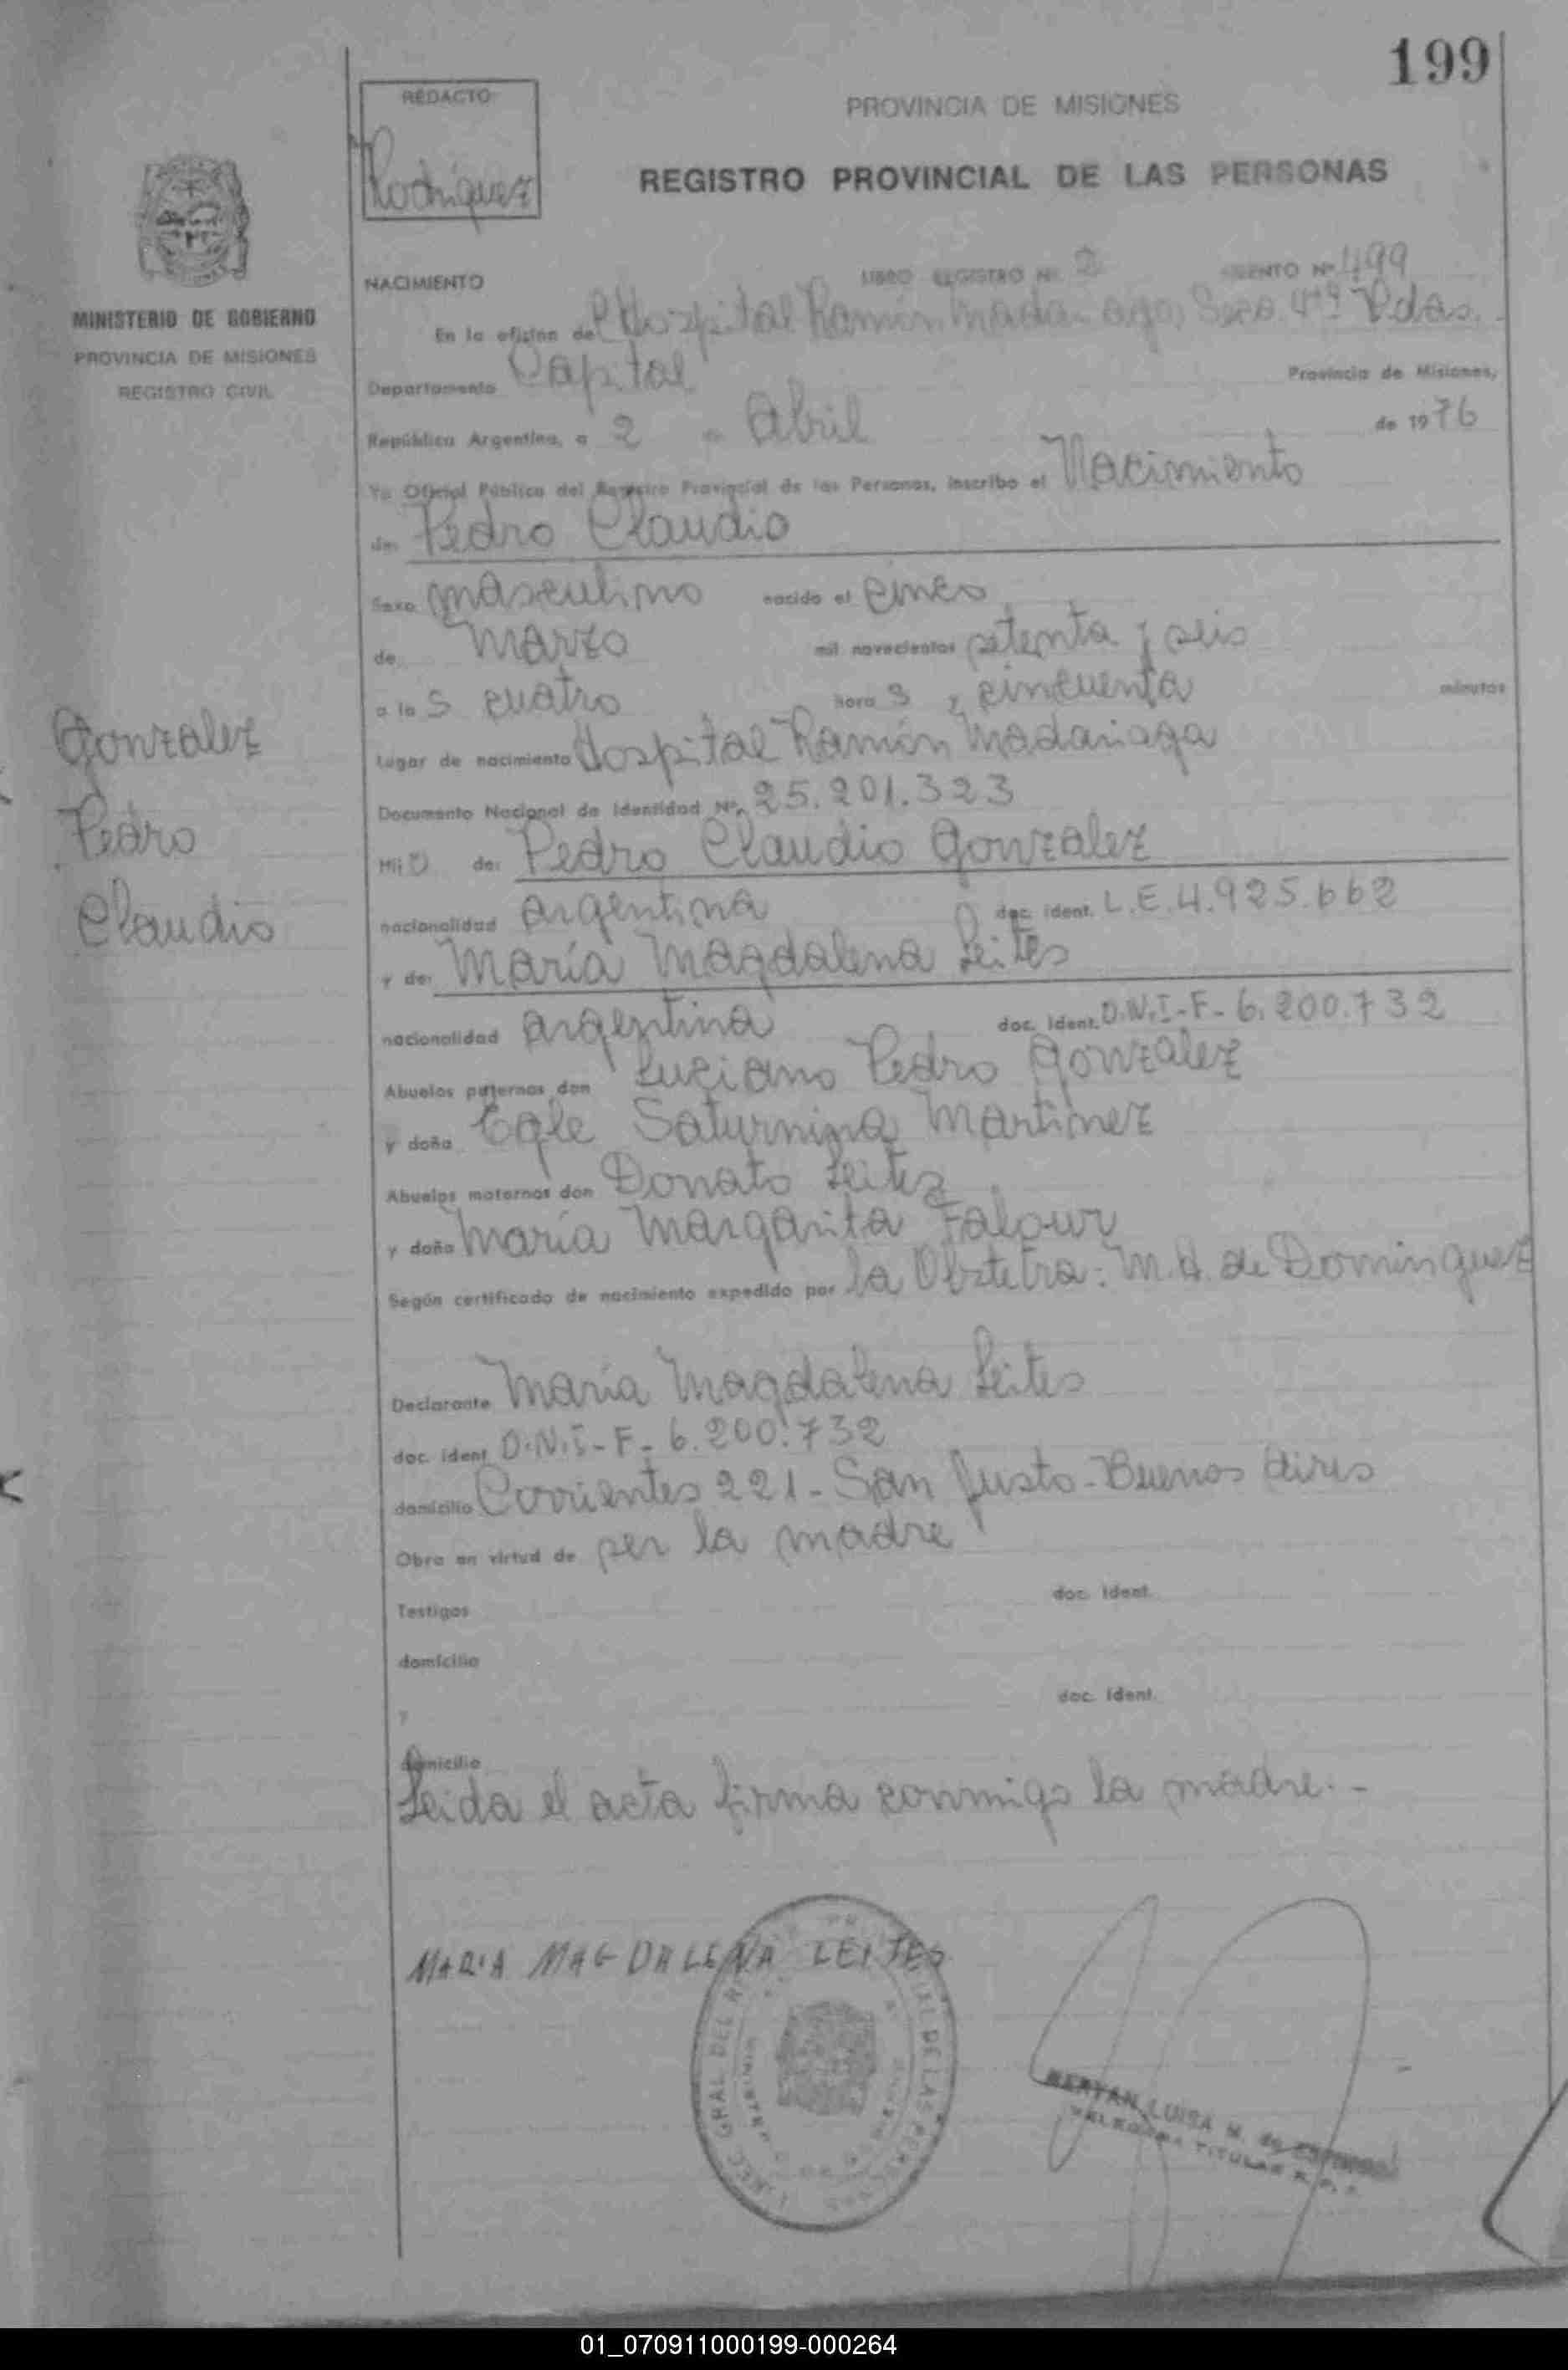 199
REDACTO
Rodriguez
PROVINCIA DE MISIONES
REGISTRO PROVINCIAL DE LAS PERSONAS
MINISTERIO DE GOBIERNO
PROVINCIA DE MISIONES
REGISTRO CIVIL
NACIMIENTO LIBRO REGISTRO Nº 2 ASIENTO Nº 499
En la oficina de Hospital Ramón Madariaga, Secc. 4ta Pdas.
Departamento Capital Provincia de Misiones,
República Argentina, a 2 de Abril de 1976
Yo Oficial Público del Registro Provincial de las Personas, inscribo el Nacimiento
de: Pedro Claudio
Sexo masculino nacido el cinco
de marzo mil novecientos setenta y seis
a las cuatro hora s y cincuenta minutos
Lugar de nacimiento Hospital Ramón Madariaga
Documento Nacional de Identidad Nº 25.201.323
Hijo de: Pedro Claudio Gonzalez
nacionalidad argentina doc. ident. L.E. 4.925.662
y de: María Magdalena Leites
nacionalidad argentina doc. ident. D.N.I-F- 6.200.732
Abuelos paternos don Luciano Pedro Gonzalez
y doña Egle Saturnina Martinez
Abuelos maternos don Donato Leitez
y doña María Margarita Falour
Según certificado de nacimiento expedido por la Obstetra: M.A. de Dominguez
Declarante María Magdalena Leites
doc. ident. D.N.I-F- 6.200.732
domicilio Corrientes 221- San Justo- Buenos Aires
Obra en virtud de ser la madre
Testigos doc. ident.
domicilio
y doc. ident.
domicilio
Leida el acta firma conmigo la madre.-
Gonzalez
Pedro
Claudio
MARIA MAGDALENA LEITES
GRAL DEL DE LAS
LUISA M. de
TITULAR
01_070911000199-000264